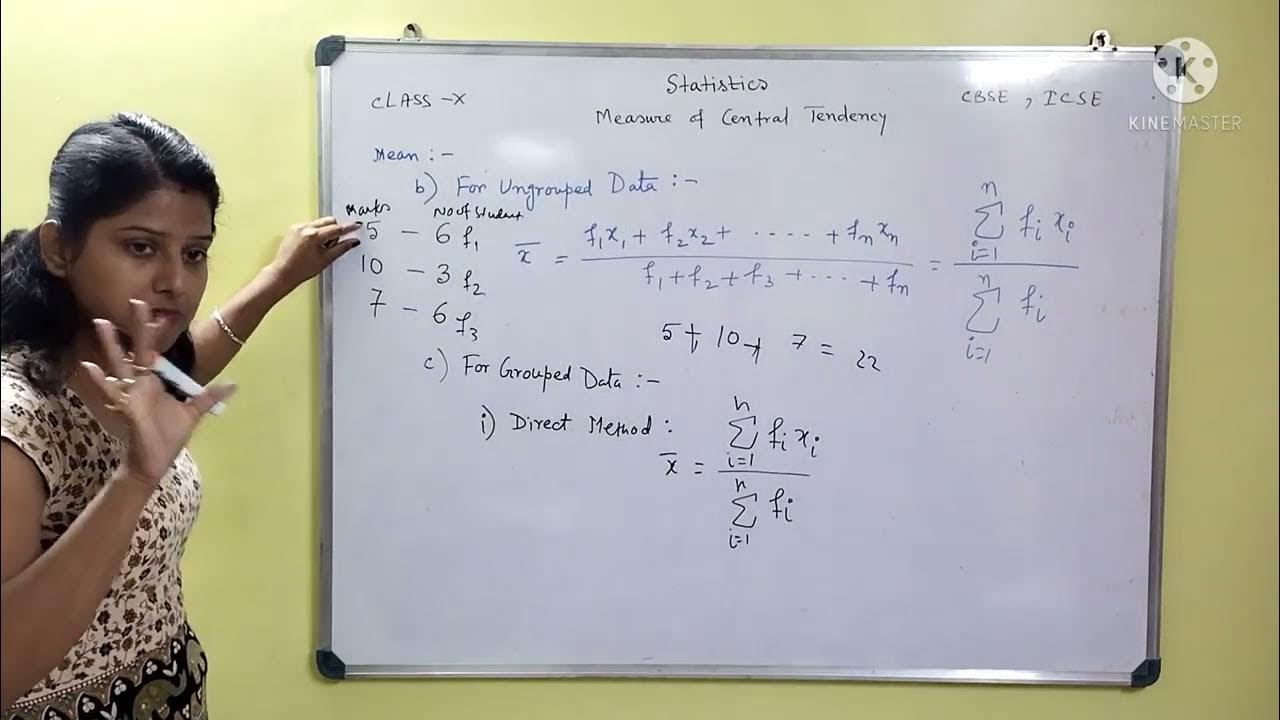 Statistics
CLASS -X
CBSE , ICSE
Measure of Central Tendency
KINEMASTER
Mean :-
b) For Ungrouped Data :-
Marks No of Student
5 - 6 f₁
10 - 3 f₂
7 - 6 f₃
x̄ = (f₁x₁ + f₂x₂ + ..... + fₙxₙ) / (f₁ + f₂ + f₃ + .... + fₙ) = (∑ⁿᵢ₌₁ fᵢ xᵢ) / (∑ⁿᵢ₌₁ fᵢ)
5 + 10 + 7 = 22
c) For Grouped Data :-
i) Direct Method :
x̄ = (∑ⁿᵢ₌₁ fᵢ xᵢ) / (∑ⁿᵢ₌₁ fᵢ)